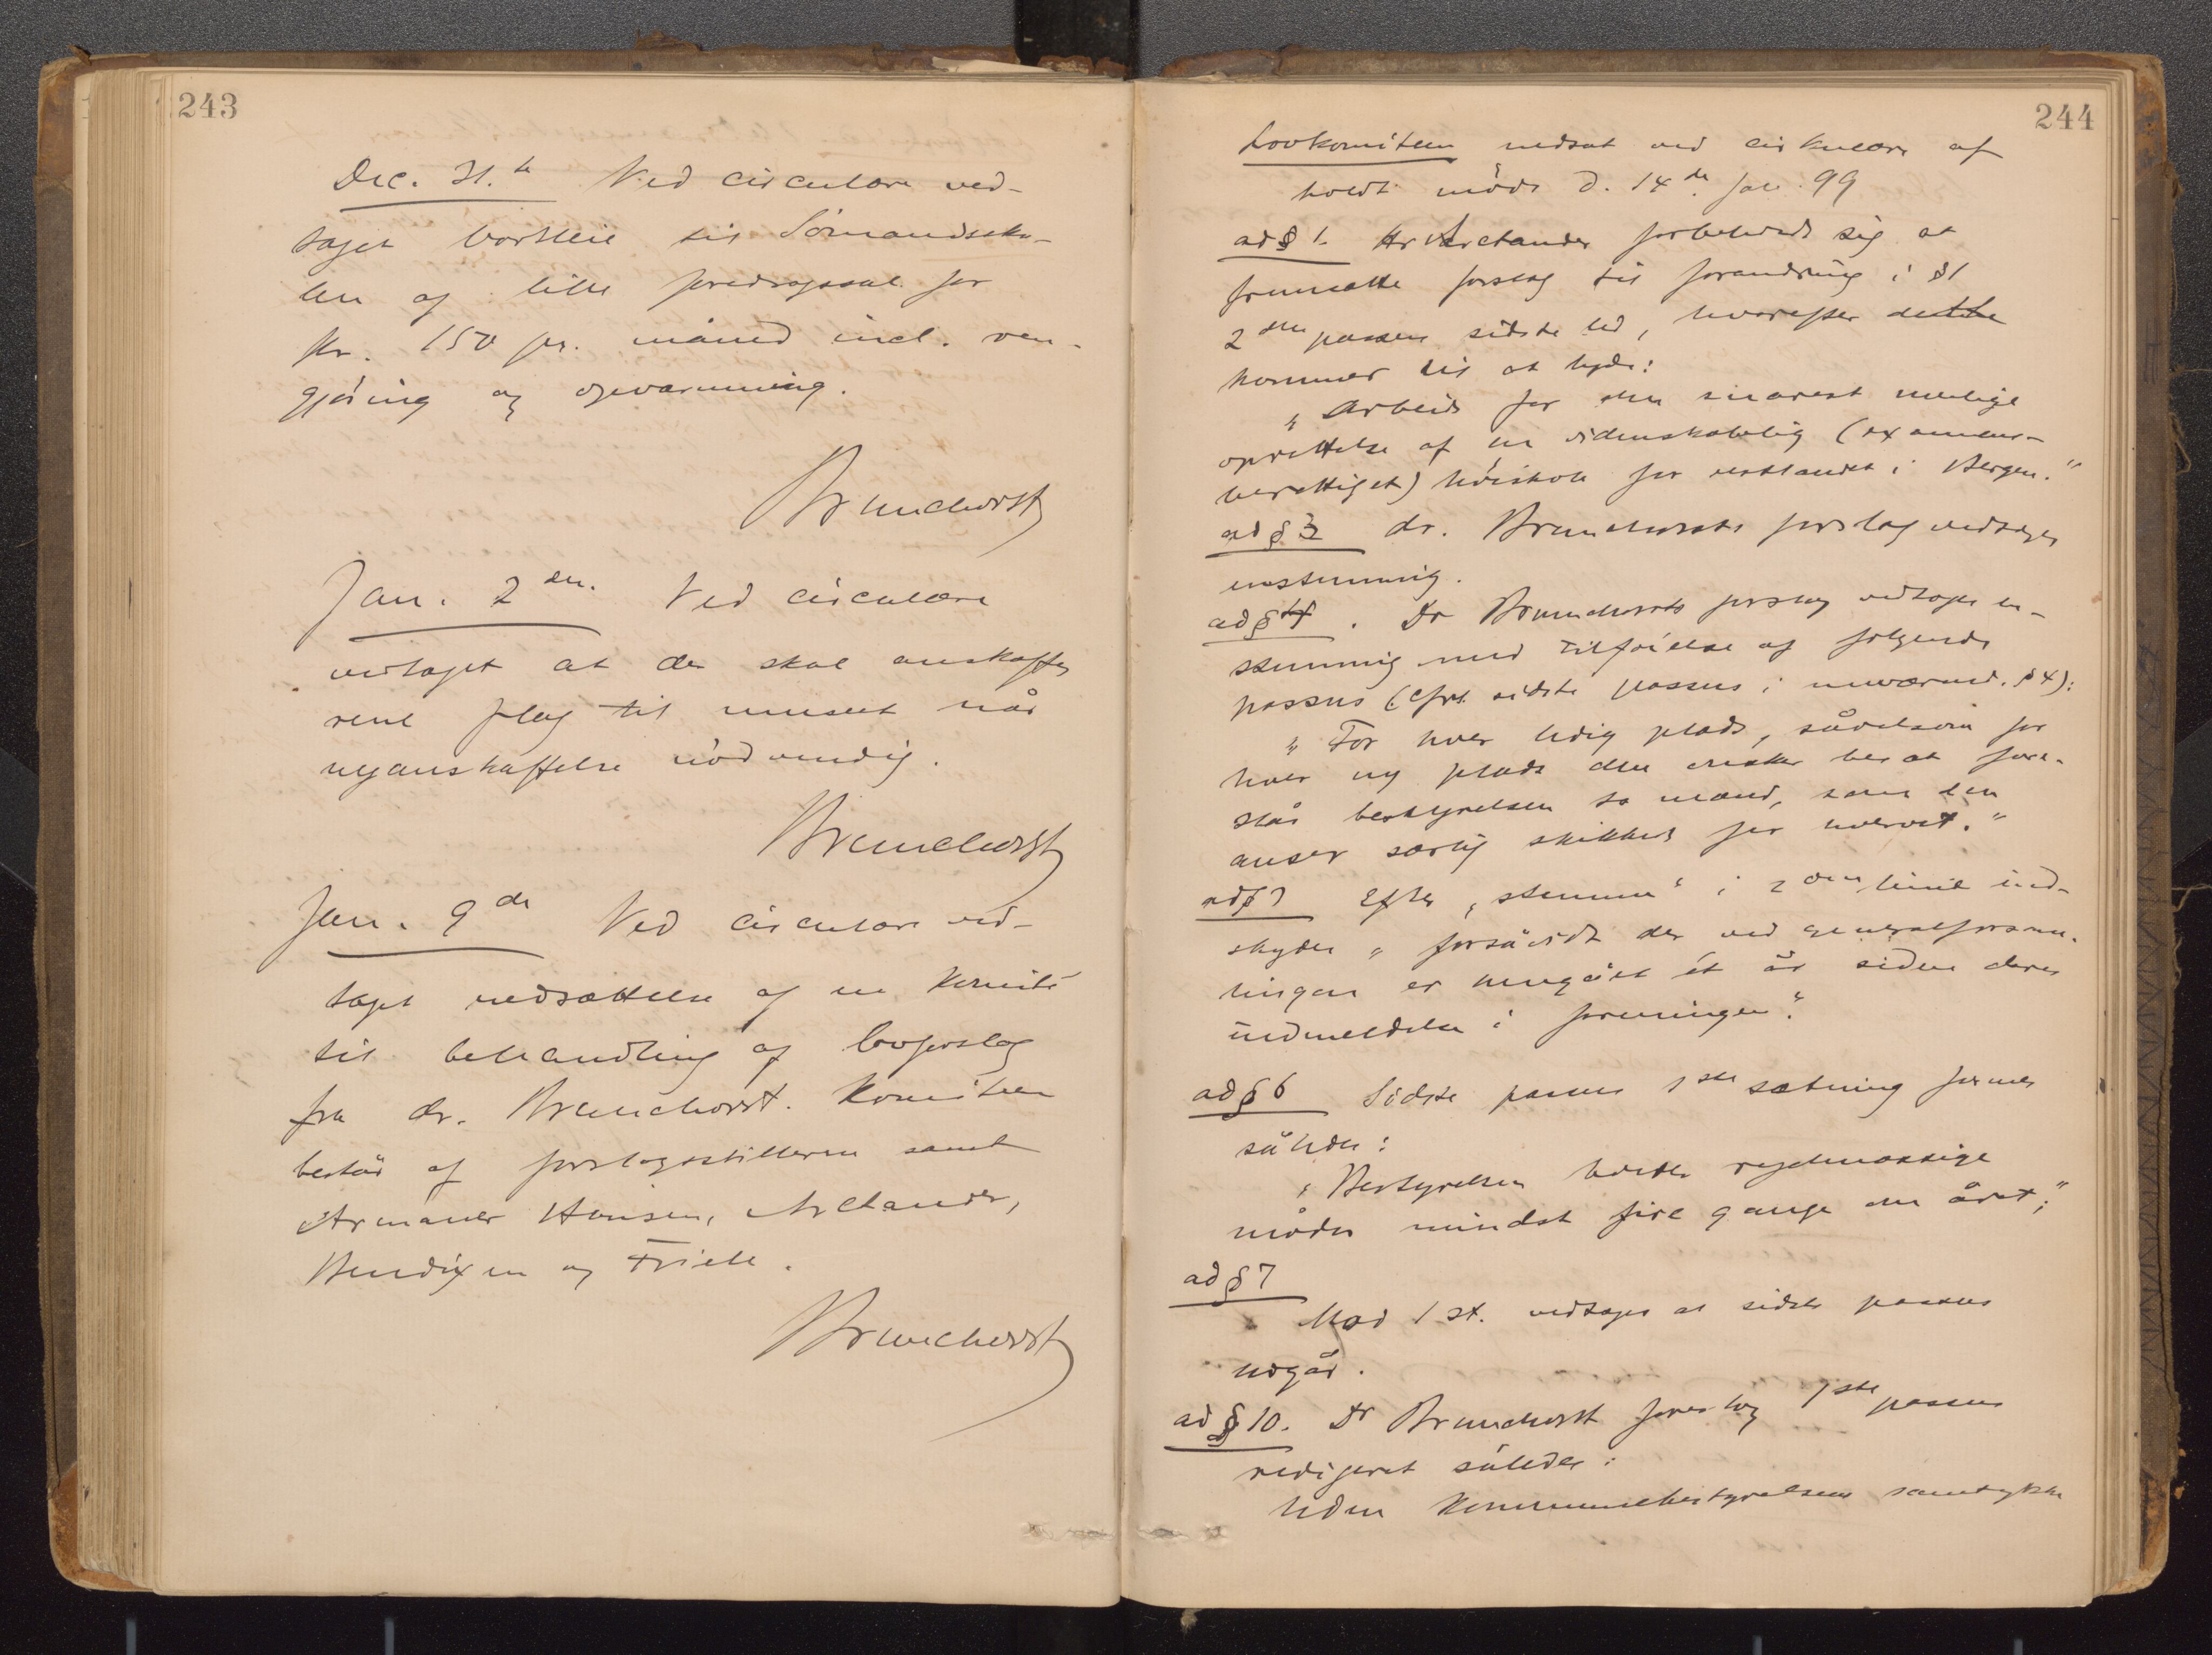 243
Dec. 31.te Ved circulære ved-
taget bortleie til Sömandssko-
len af lille foredragssal for
kr. 150 pr. måned incl. ren-
gjöring og opvarmning.
Brunchorst
Jan. 2den. Ved circulære
vedtaget at der skal anskaffes
rent flag til museet når
nyanskaffelse nödvendig.
Brunchorst
Jan. 9de Ved circulære ved-
taget nedsættelse af en komité
til behandling af lovforslag
fra dr. Brunchorst. Komiteen
består af forslagsstilleren samt
Armauer Hansen, Arctander,
Bendixen og Friele.
Brunchorst
244
Lovkomiteen nedsat ved cirkulære af
holdt möde d. 14de Jan. 99
ad § 1. Hr Arctander forbeholdt sig at
fremsætte forslag til forandring i § 1
2den passus sidste led, hvorefter dette
kommer til at lyde:
„Arbeide for den snarest mulige
oprettelse af en videnskabelig (examens-
berettiget) höiskole for vestlandet i Bergen."
ad § 3 dr. Brunchorsts forslag vedtages
enstemmig.
ad § 4. Dr Brunchorsts forslag vedtages en-
stemmig med tilföielse af fölgende
passus (cfr. sidste passus i nuværend. § 4):
„For hver ledig plads, såvelsom for
hver ny plads den önsker besat fore-
slår bestyrelsen to mænd, som den
anser særlig skikket for hvervet."
ad § 7 Efter „stemme" i 2den linie ind-
skydes „forsåvidt der ved generalforsam-
lingen er hengået ét år siden deres
indmeldelse i foreningen".
ad § 6 Sidste passus 1ste sætning formes
således:
„Bestyrelsen holder regelmæssige
möder mindst fire gange om året;"
ad § 7
Mod 1 st. vedtages at sidste passus
udgår.
ad § 10. Dr Brunchorst foreslog 1ste passus
redigeret således:
Uden kommunebestyrelsens samtykke